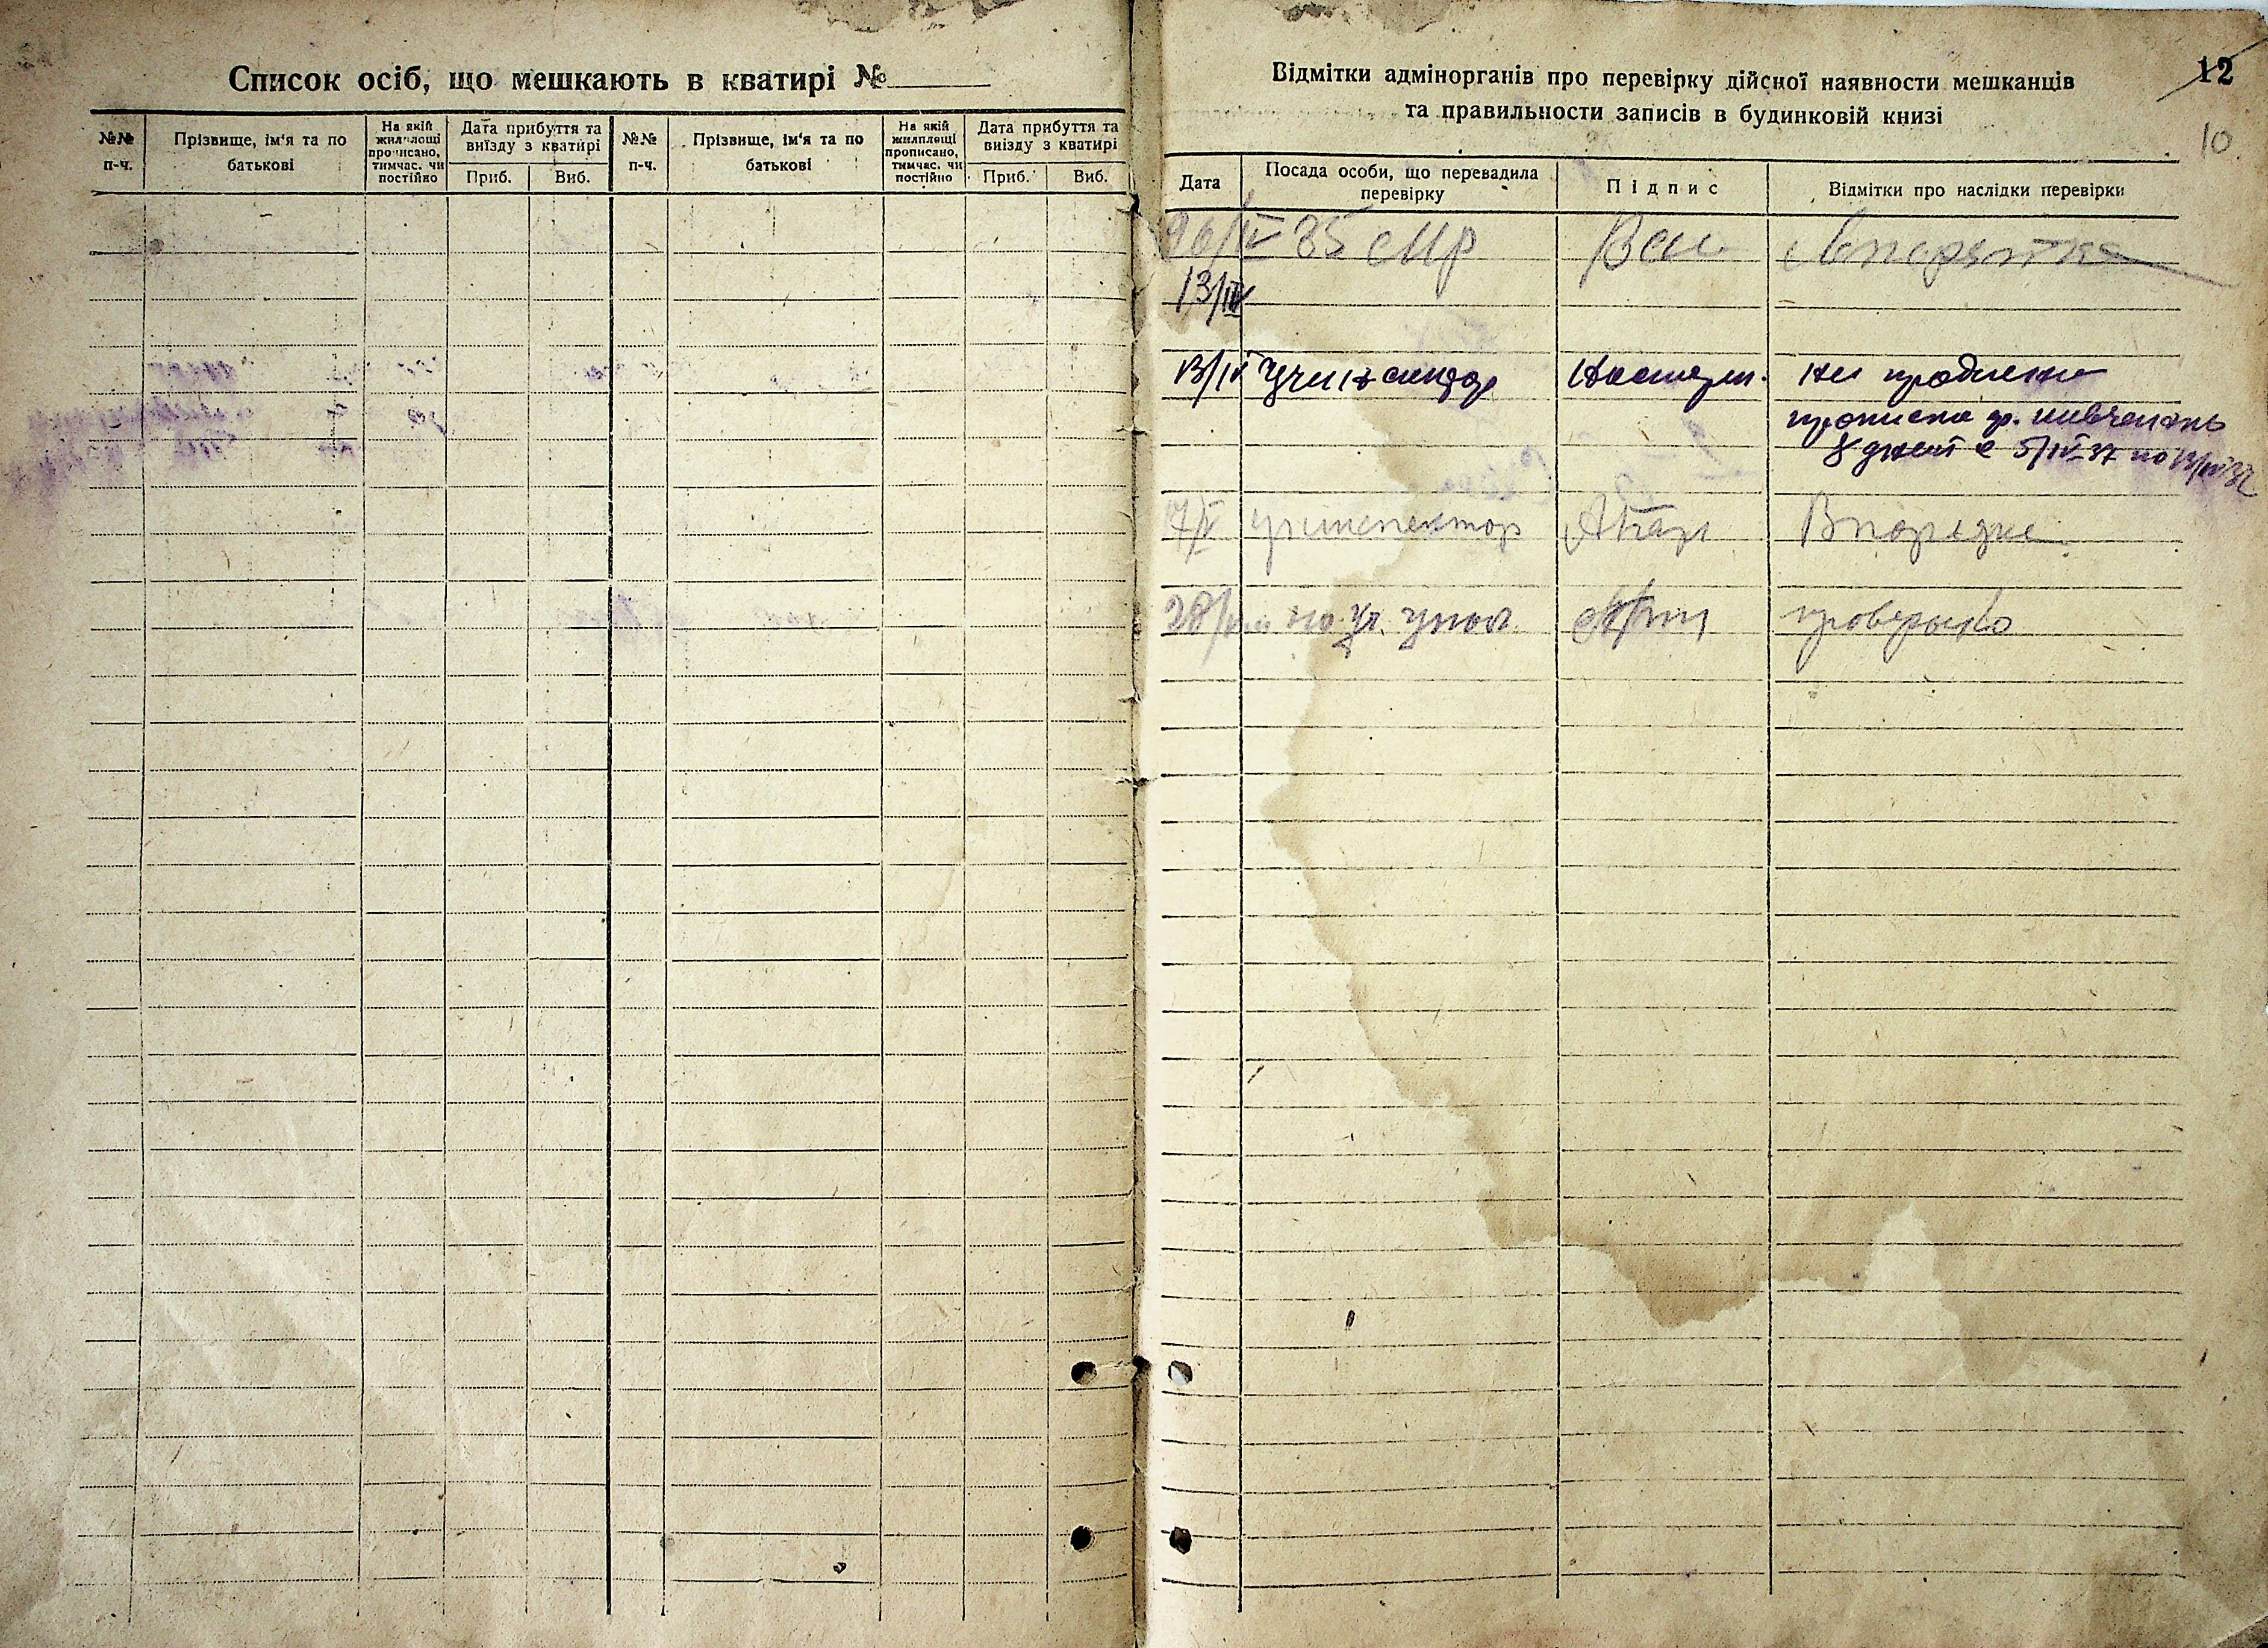 Список осіб, що мешкають в кватирі №
№№ п-ч.
Прізвище, ім'я та по батькові
На якій жилплощі прописано, тимчас. чи постійно
Дата прибуття та виїзду з кватирі
Приб.
Виб.
№№ п-ч.
Прізвище, ім'я та по батькові
На якій жилплощі прописано, тимчас. чи постійно
Дата прибуття та виїзду з кватирі
Приб.
Виб.
12
10
Відмітки адмінорганів про перевірку дійсної наявности мешканців
та правильности записів в будинковій книзі
Дата
Посада особи, що перевадила перевірку
Підпис
Відмітки про наслідки перевірки
26/IV 35
13/IV
13/IV
не
прописка гр.
8 дней с 5/IV-37 по 13/IV 37
7/V участ. инспектор
В порядке
по уч. упол.
проверено